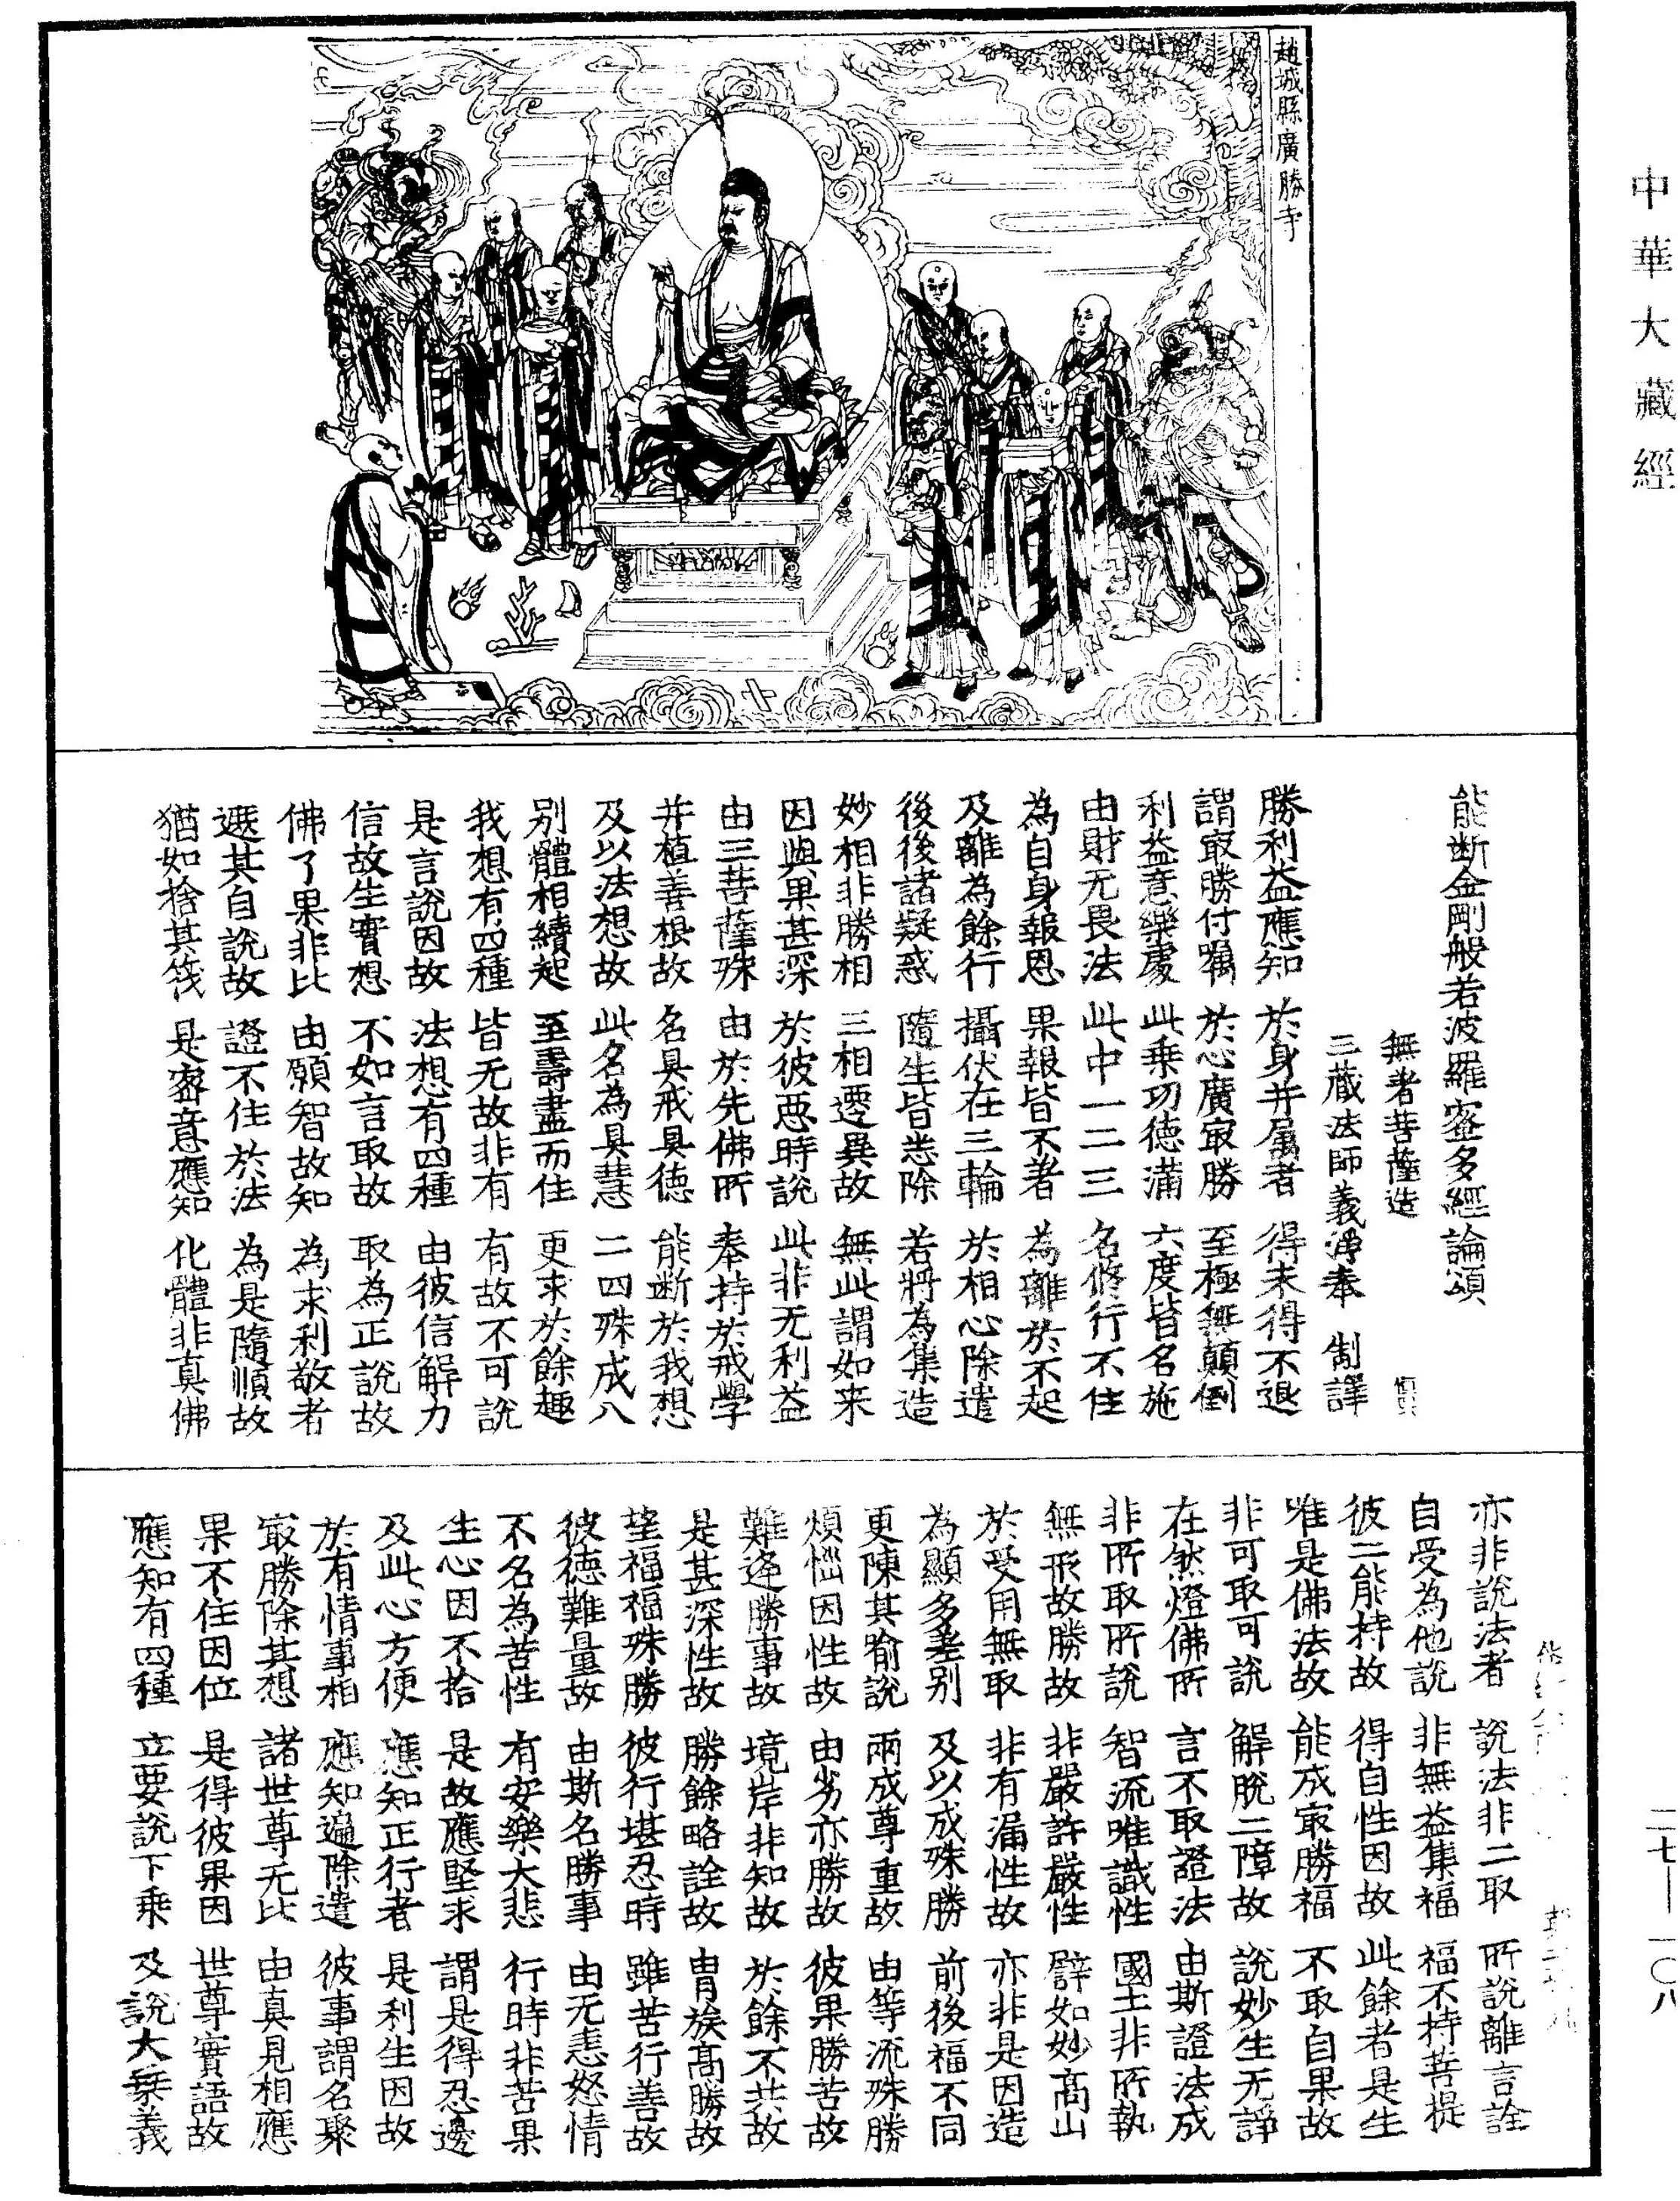 中華大藏經
趙城縣廣勝寺
能斷金剛般若波羅蜜多經論頌
無著菩薩造
三藏法師義淨奉 制譯
勝利益應知 於身并屬者 得未得不退
謂㝡勝付囑 於心廣㝡勝 至極無顛倒
利益意樂處 此乘功德滿 六度皆名施
由財无畏法 此中一二三 名修行不住
為自身報恩 果報皆不著 為離於不起
及離為餘行 攝伏在三輪 於相心除遣
後後諸疑惑 隨生皆悉除 若將為集造
妙相非勝相 三相遷異故 無此謂如来
因與果甚深 於彼惡時說 此非无利益
由三菩薩殊 由於先佛所 奉持於戒學
并植善根故 名具戒具德 能斷於我想
及以法想故 此名為具慧 二四殊成八
別體相續起 至壽盡而住 更求於餘趣
我想有四種 皆无故非有 有故不可說
是言說因故 法想有四種 由彼信解力
信故生實想 不如言取故 取為正說故
佛了果非比 由願智故知 為求利敬者
遮其自說故 證不住於法 為是隨順故
猶如捨其筏 是密意應知 化體非真佛
亦非說法者 說法非二取 所說離言詮
自受為他說 非無益集福 福不持菩提
彼二能持故 得自性因故 此餘者是生
唯是佛法故 能成㝡勝福 不取自果故
非可取可說 解脫二障故 說妙生无諍
在然燈佛所 言不取證法 由斯證法成
非所取所說 智流唯識性 國土非所執
無形故勝故 非嚴許嚴性 譬如妙高山
於受用無取 非有漏性故 亦非是因造
為顯多差別 及以成殊勝 前後福不同
更陳其喻說 兩成尊重故 由等流殊勝
煩惱因性故 由劣亦勝故 彼果勝苦故
難逢勝事故 境岸非知故 於餘不共故
是甚深性故 勝餘略詮故 胄族高勝故
望福福殊勝 彼行堪忍時 雖苦行善故
彼德難量故 由斯名勝事 由无恚怒情
不名為苦性 有安樂大悲 行時非苦果
生心因不捨 是故應堅求 謂是得忍邊
及此心方便 應知正行者 是利生因故
於有情事相 應知遍除遣 彼事謂名聚
㝡勝除其想 諸世尊无比 由真見相應
果不住因位 是得彼果因 世尊實語故
應知有四種 立要說下乘 及說大乘義
二七—一〇八